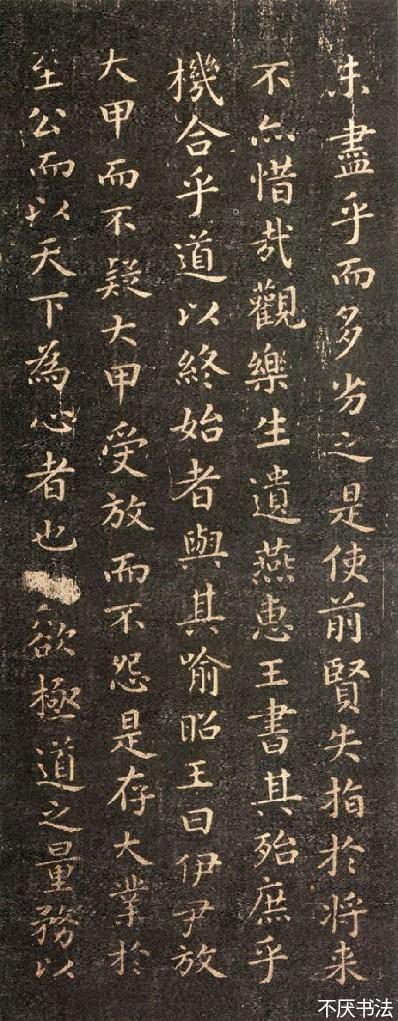 未盡乎而多劣之是使前賢失指於将来
不亦惜哉觀樂生遺燕惠王書其殆庶乎
機合乎道以終始者與其喻昭王曰伊尹放
大甲而不疑大甲受放而不怨是存大業於
至公而以天下為心者也欲極道之量務以
不厌书法